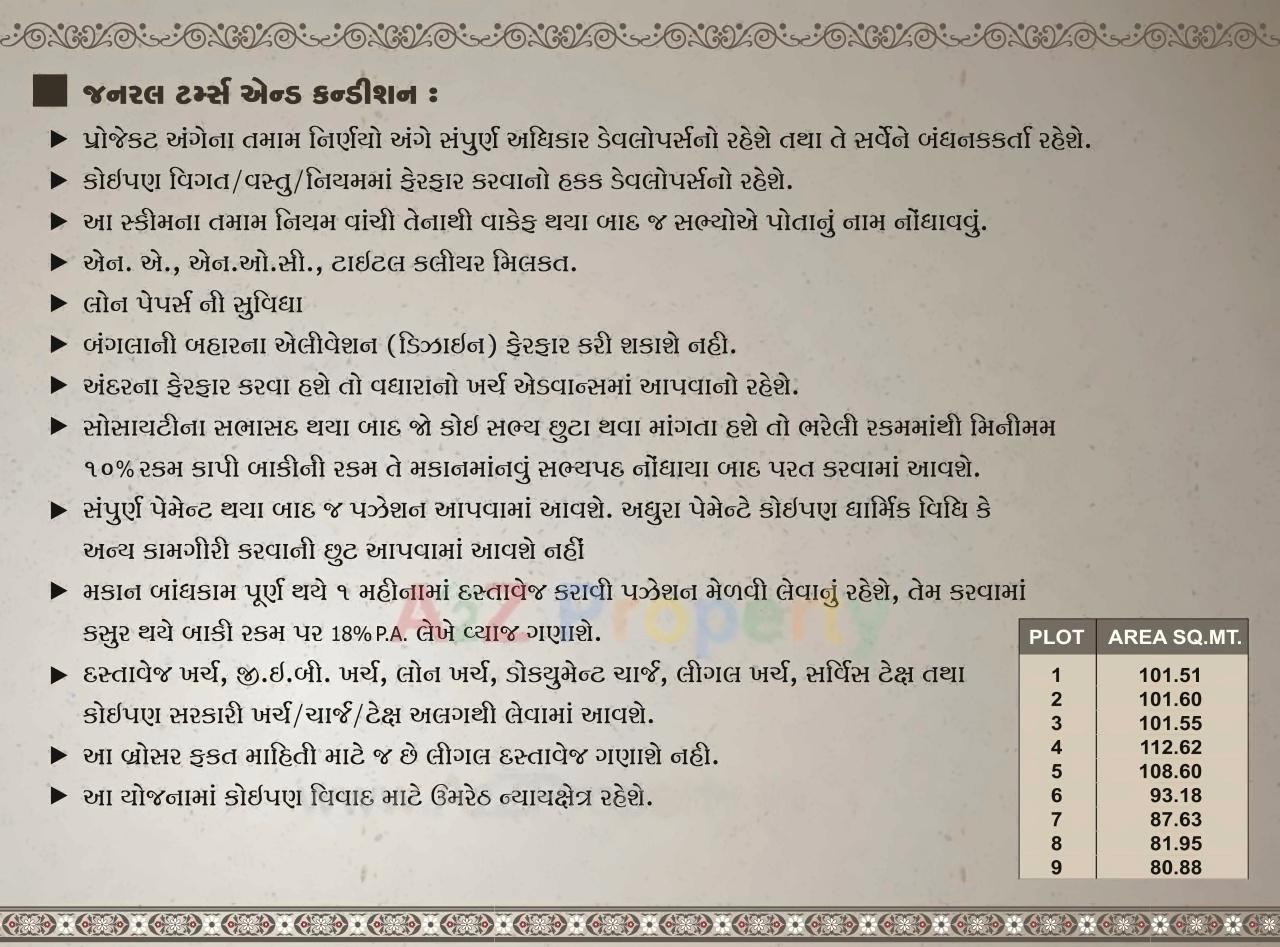 જનરલ ટર્મ્સ એન્ડ કન્ડીશન :
► પ્રોજેકટ અંગેના તમામ નિર્ણયો અંગે સંપુર્ણ અધિકાર ડેવલોપર્સનો રહેશે તથા તે સર્વેને બંધનકકર્તા રહેશે.
► કોઇપણ વિગત/વસ્તુ/નિયમમાં ફેરફાર કરવાનો હકક ડેવલોપર્સનો રહેશે.
► આ સ્કીમના તમામ નિયમ વાંચી તેનાથી વાકેફ થયા બાદ જ સભ્યોએ પોતાનું નામ નોંધાવવું.
► એન. એ., એન.ઓ.સી., ટાઇટલ કલીયર મિલકત.
► લોન પેપર્સ ની સુવિધા
► બંગલાની બહારના એલીવેશન (ડિઝાઇન) ફેરફાર કરી શકાશે નહી.
► અંદરના ફેરફાર કરવા હશે તો વધારાનો ખર્ચ એડવાન્સમાં આપવાનો રહેશે.
► સોસાયટીના સભાસદ થયા બાદ જો કોઇ સભ્ય છુટા થવા માંગતા હશે તો ભરેલી રકમમાંથી મિનીમમ
૧૦% રકમ કાપી બાકીની રકમ તે મકાનમાંનવું સભ્યપદ નોંધાયા બાદ પરત કરવામાં આવશે.
► સંપુર્ણ પેમેન્ટ થયા બાદ જ પઝેશન આપવામાં આવશે. અધુરા પેમેન્ટે કોઇપણ ધાર્મિક વિધિ કે
અન્ય કામગીરી કરવાની છુટ આપવામાં આવશે નહીં
► મકાન બાંધકામ પૂર્ણ થયે ૧ મહીનામાં દસ્તાવેજ કરાવી પઝેશન મેળવી લેવાનું રહેશે, તેમ કરવામાં
કસુર થયે બાકી રકમ પર 18% P.A. લેખે વ્યાજ ગણાશે.
► દસ્તાવેજ ખર્ચ, જી.ઇ.બી. ખર્ચ, લોન ખર્ચ, ડોકયુમેન્ટ ચાર્જ, લીગલ ખર્ચ, સર્વિસ ટેક્ષ તથા
કોઇપણ સરકારી ખર્ચ/ચાર્જ/ટેક્ષ અલગથી લેવામાં આવશે.
► આ બ્રોસર ફકત માહિતી માટે જ છે લીગલ દસ્તાવેજ ગણાશે નહી.
► આ યોજનામાં કોઇપણ વિવાદ માટે ઉમરેઠ ન્યાયક્ષેત્ર રહેશે.
A2Z Property
PLOT AREA SQ.MT.
1 101.51
2 101.60
3 101.55
4 112.62
5 108.60
6 93.18
7 87.63
8 81.95
9 80.88